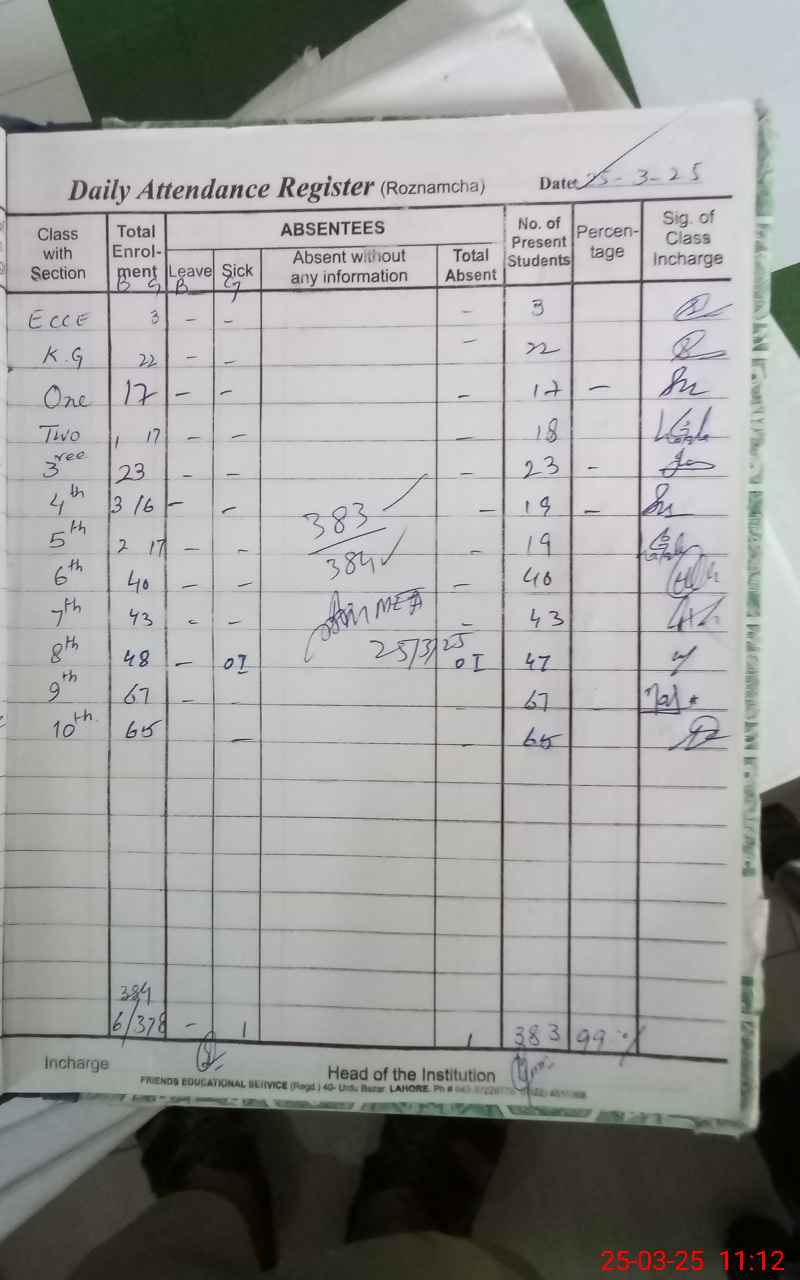 Daily Attendance Register (Roznamcha) Date: 25-3-25
Class with Section Total Enrolment ABSENTEES No. of Present Students Percentage Sig. of Class Incharge
Leave Sick Absent without any information Total Absent
B G B G
ECCE 3 - - - 3
K.G 22 - - - 22
One 17 - - - 17 -
Two 1 17 - - - 18
3ree 23 - - - 23 -
4th 3 16 - - - 19 -
383
5th 2 17 - - - 19
384
6th 40 - - - 40
MEA
7th 43 - - - 43
25/3/25
8th 48 - 01 01 47
9th 67 - - 67
10th 65 - - 65
384
6/378 - 1 1 383 99%
Incharge Head of the Institution
FRIENDS EDUCATIONAL SERVICE (Regd.) 40- Urdu Bazar, LAHORE. Ph #
25-03-25 11:12